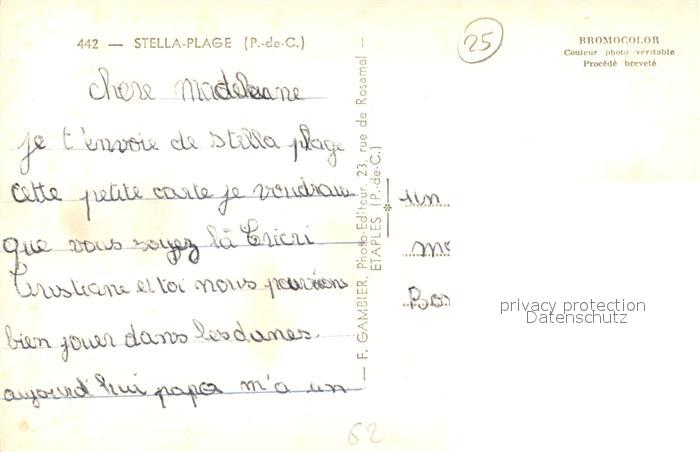 442 — STELLA-PLAGE (P.-de-C.)
25
BROMOCOLOR
Couleur photo véritable
Procédé breveté
chere Madeleine
je t'envoie de stella plage
cette petite carte je voudrais
que vous soyez là Cricri
Cristiane et toi nous pourrions
bien jouer dans les dunes.
aujourd'hui papa m'a un
— F. GAMBIER, Photo-Editeur, 23, rue de Rosamel —
ETAPLES (P.-de-C.)
un
privacy protection
Datenschutz
62